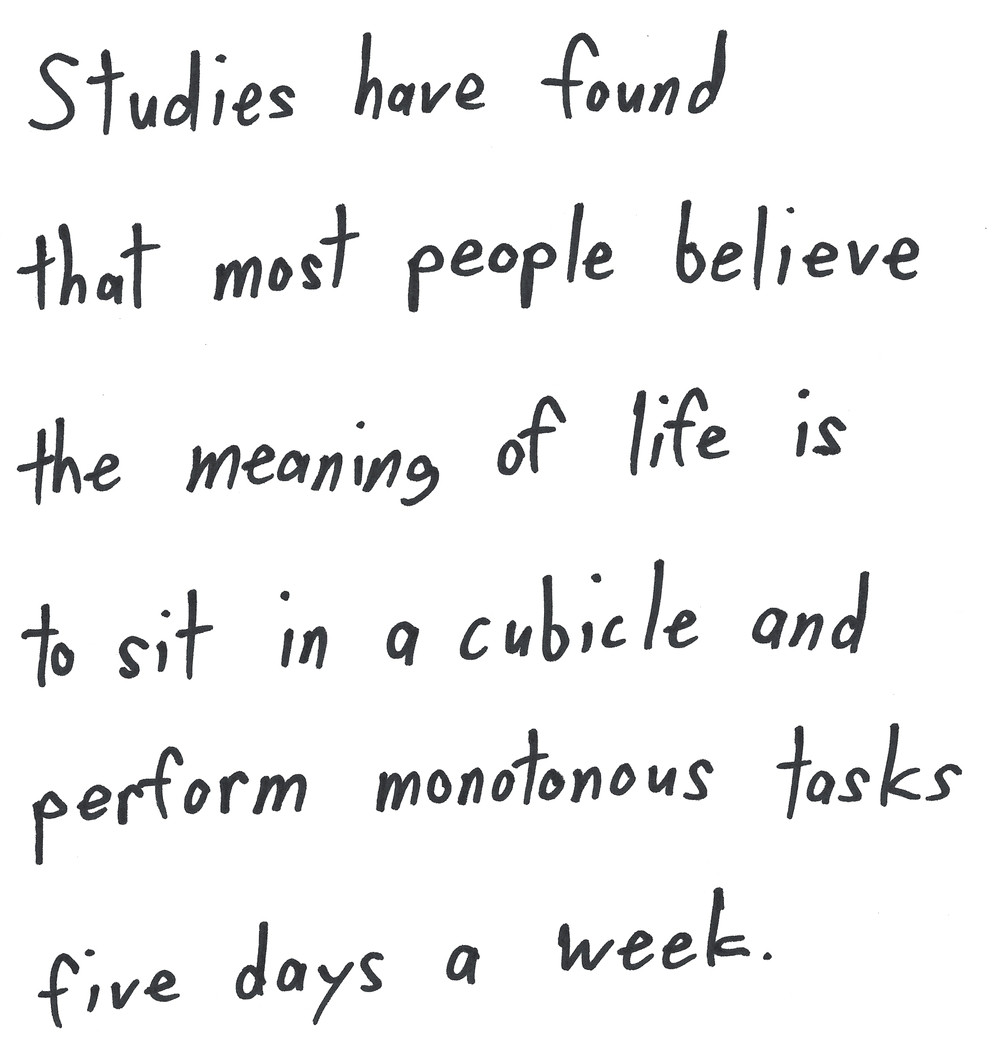 Studies have found
that most people believe
the meaning of life is
to sit in a cubicle and
perform monotonous tasks
five days a week.